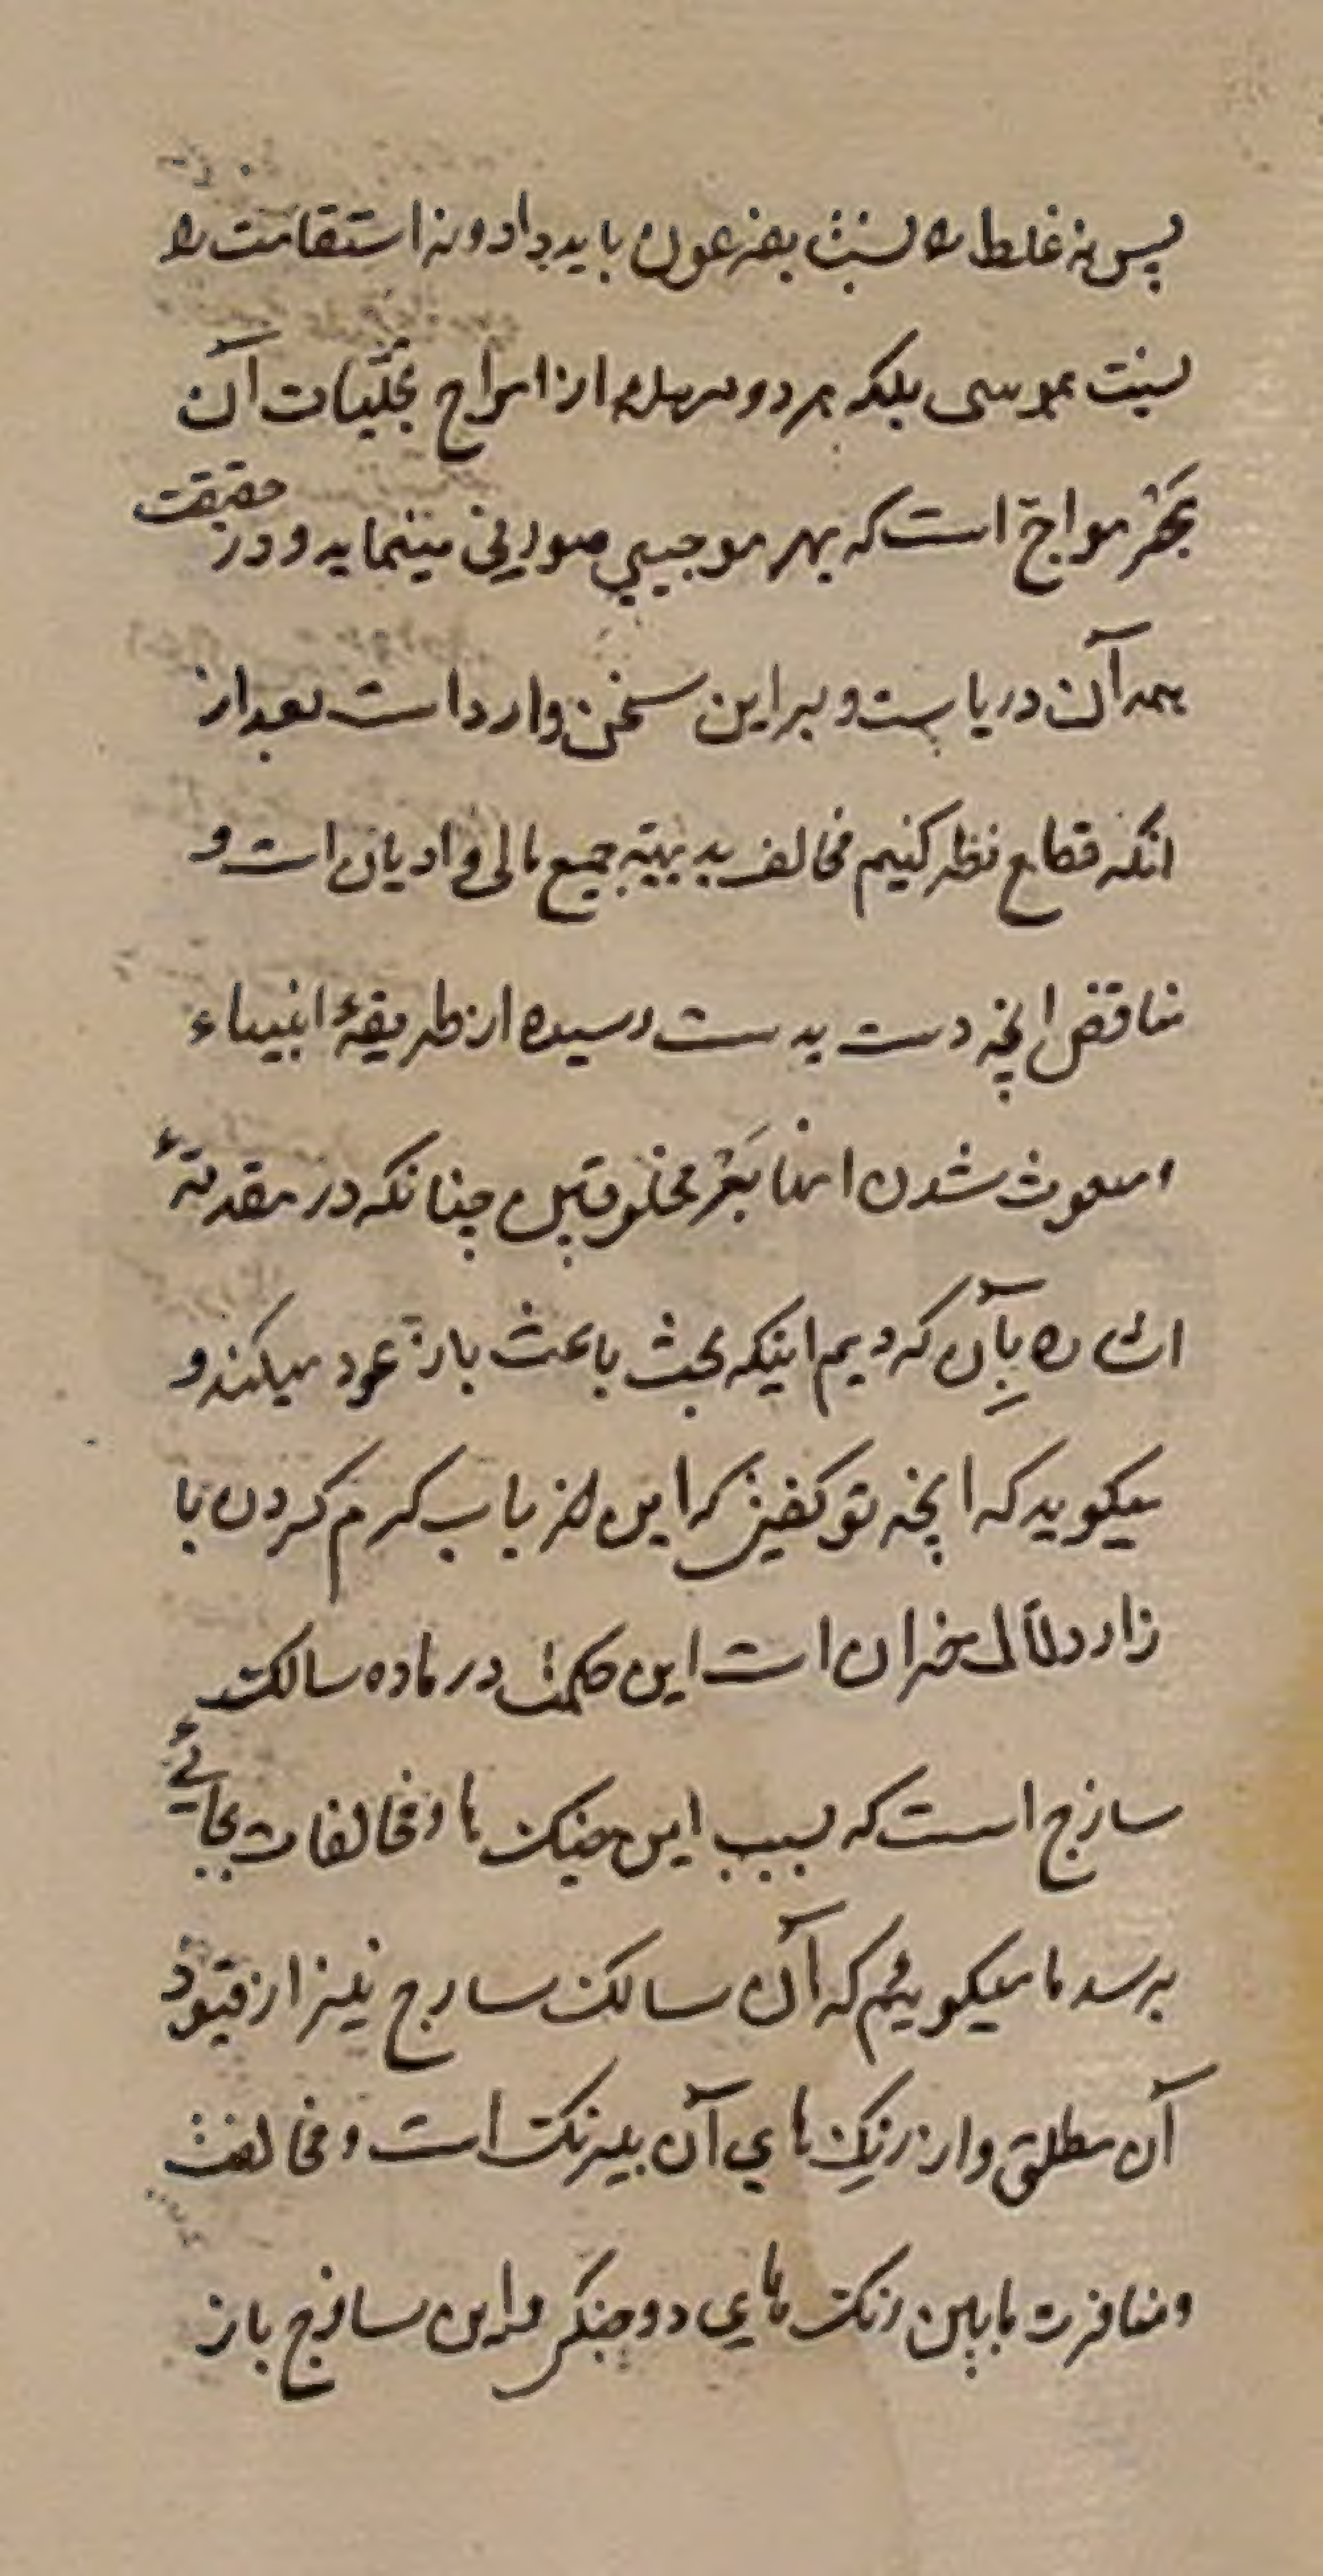 پس نه غلط را نسبت بفرعون باید داد و نه استقامت را
نسبت بموسی بلکه هر دو از امواج تجلّیات آن
بحر مواج است که بهر موجیی صورتی مینماید و در حقیقت
همه آن دریاست و بر این سخن وارد است بعد از
انکه قطع نظر کنیم مخالف بدیهیّه جمیع اهالی ادیان است و
مناقض انچه دست بدست رسیده از طریقهٔ انبیاء
و مبعوث شدن انها بغیر مخلوقین چنانکه در مقدمّهٔ
اشاره بآن کردیم اینکه بحث باعث باز عود میکند و
میکوید که انچه تو کفتی که این از باب کرم کردن با
زار دلالان خران است این حکمت در ماده سالک
سازج است که بسبب این جنک ها و مخالفات بجائے
برسد ما میکوییم که آن سالک سازج نیز از قیود
آن مطلق و از رنک های آن بیرنک است و مخالفت
و منافرت مابین رنک های دو جنکی و این سازج باز